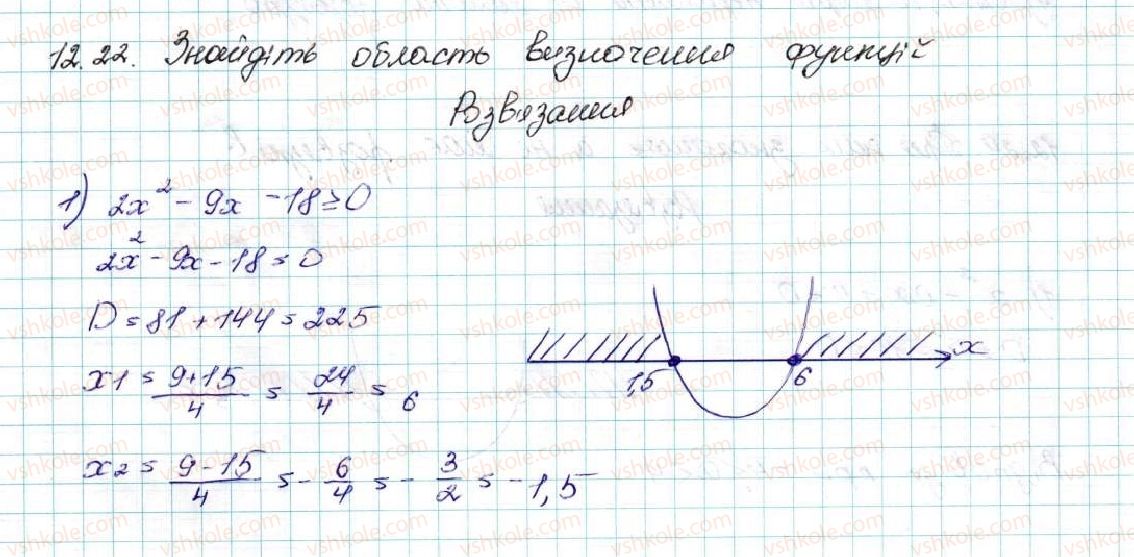 12.22. Знайдіть область визначення функцій
Взв'язання
1) 2x² - 9x - 18 ≥ 0
2x² - 9x - 18 = 0
D = 81 + 144 = 225
x1 = 9+15/4 = 24/4 = 6
x2 = 9-15/4 = - 6/4 = - 3/2 = -1,5
1,5 6 x
vshkole.com